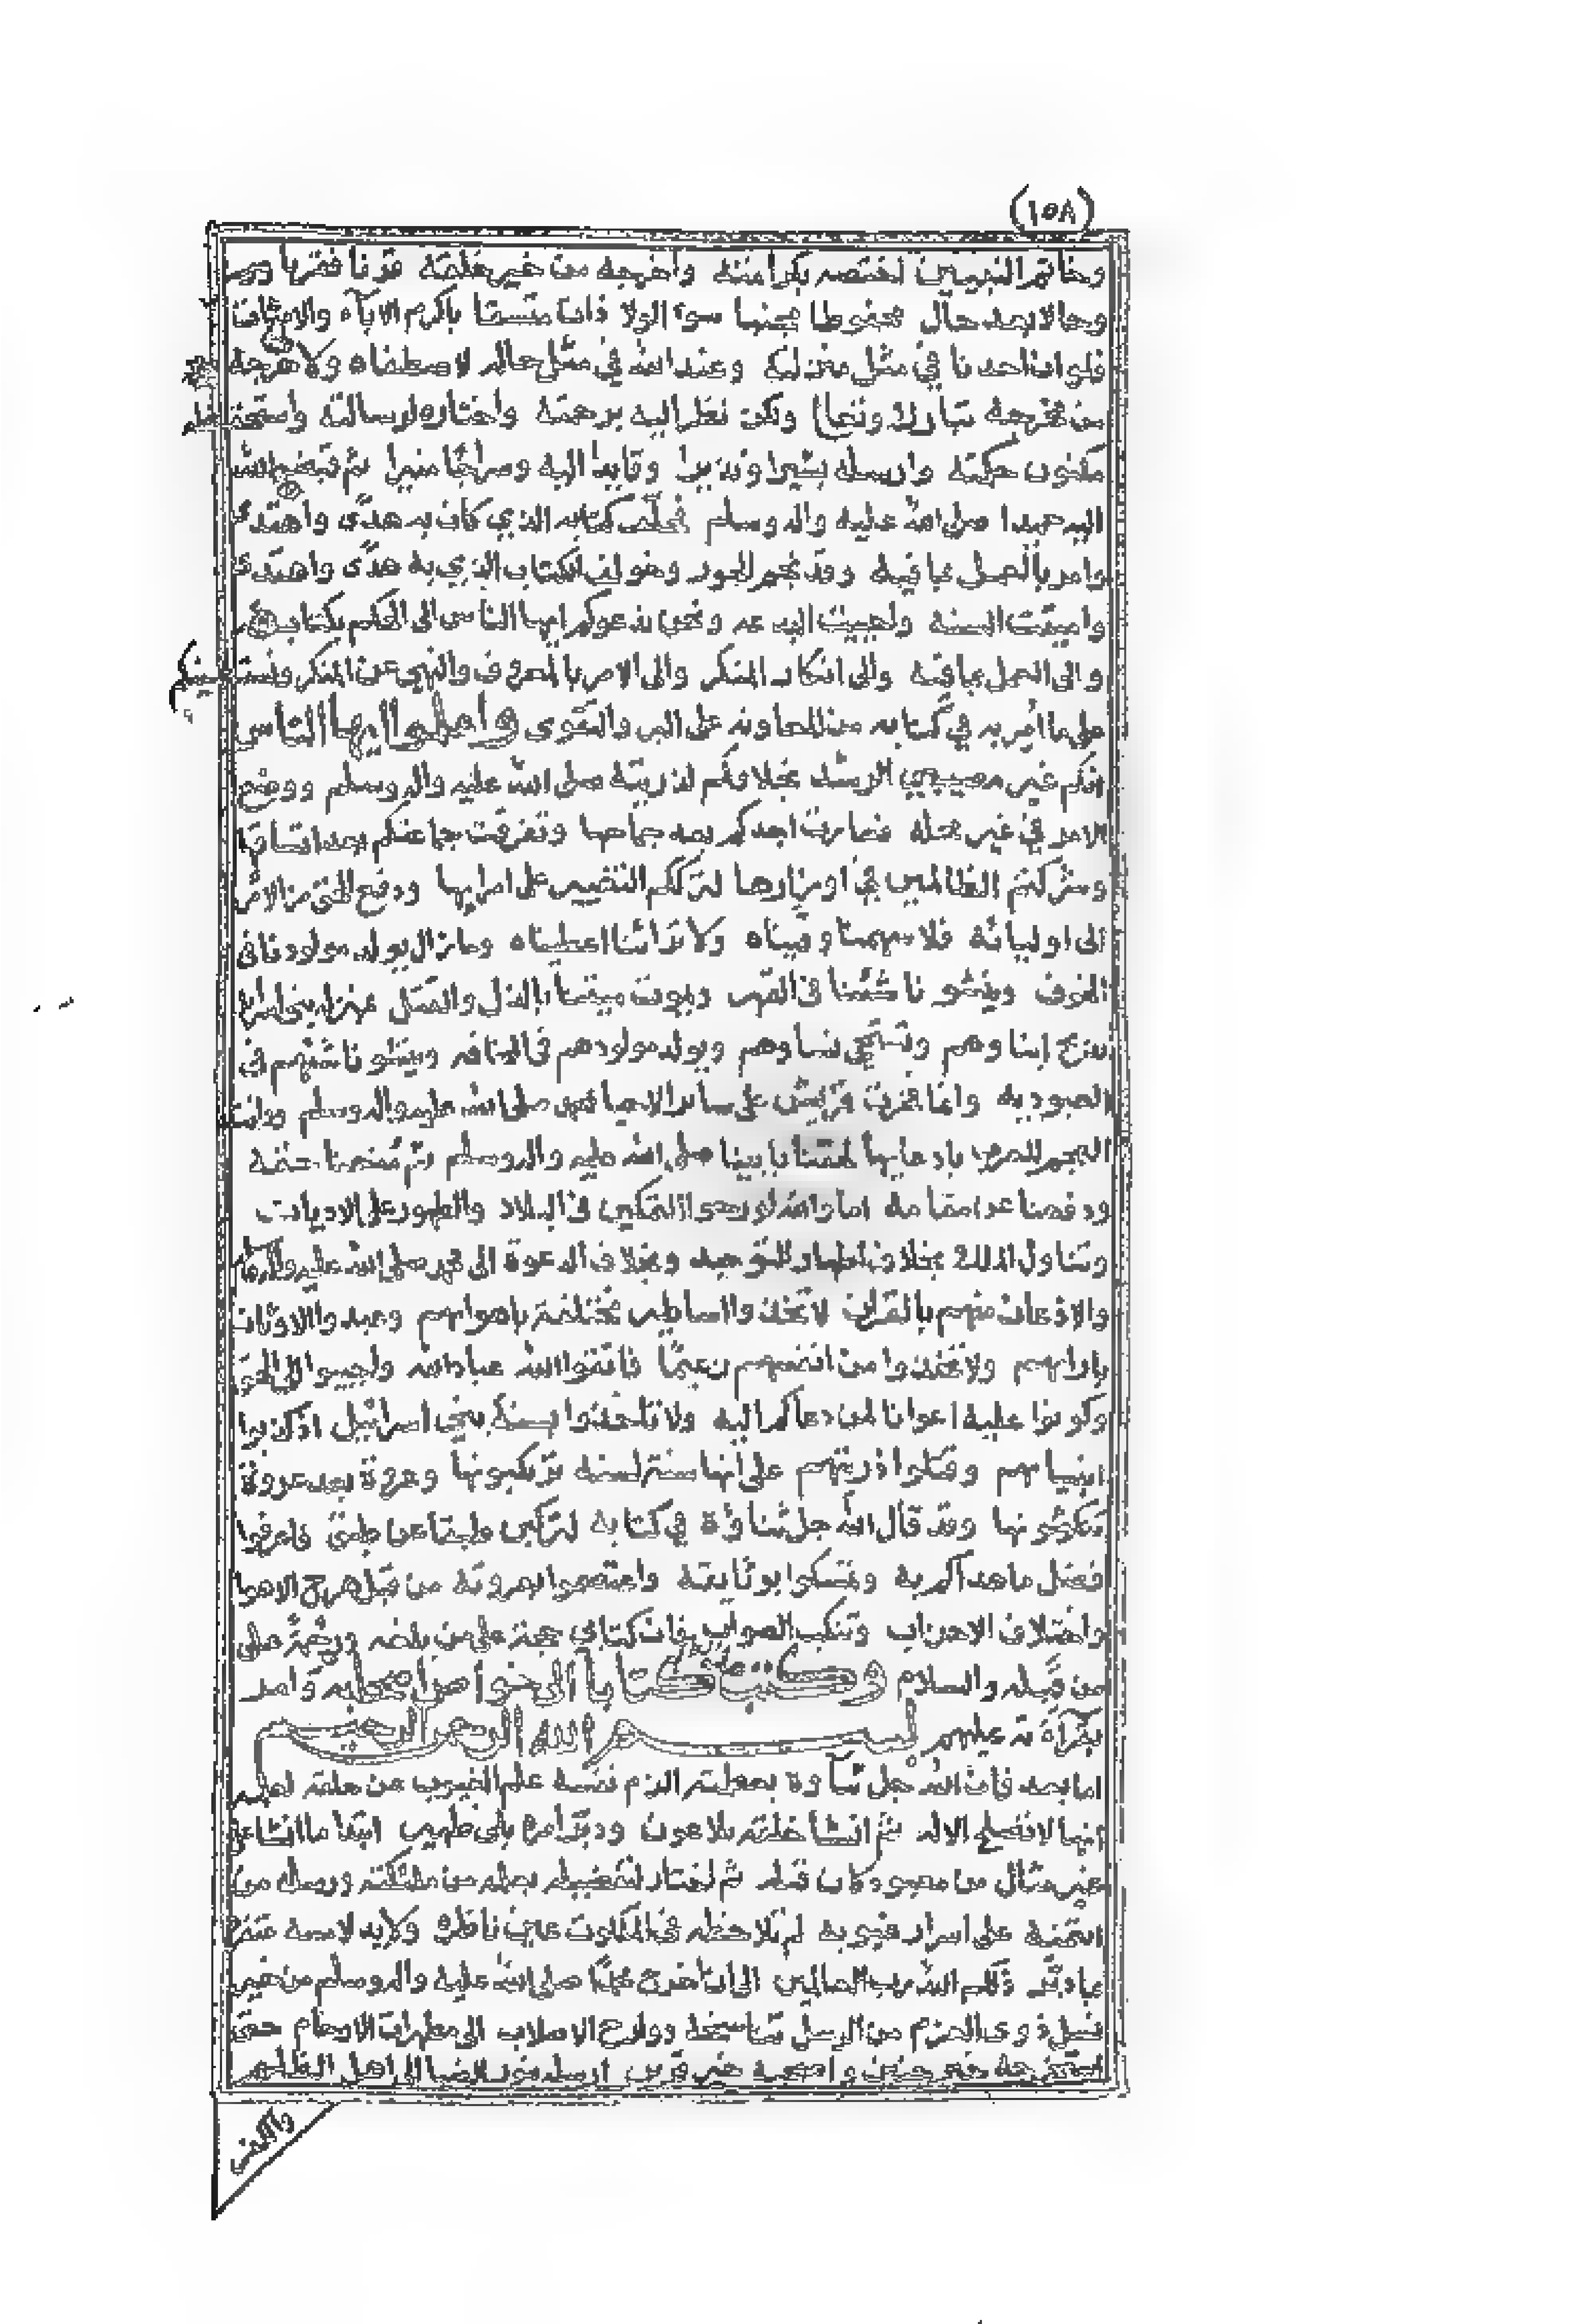 (١٥٨)
وخاتم النبيين اختصه بكرامته واخرجه من خير خلقه قرنا فقرنا
وحالا بعد حال محفوظا مجنبا سوء الولادات متسقا باكرم الآباء والامهات
فلو ان احدنا في مثل منزلته وعند الله في مثل حاله لاصطفاه ولاخرجه
من مخرجه تبارك وتعالى ولكن نظر اليه برحمته واختاره لرسالته واستحفظه
مكنون حكمته وارسله بشيرا ونذيرا وقايدا اليه وسراجا منيرا ثم قبضه الله
اليه حميدا صلى الله عليه واله وسلم فخلى كتابه الذي كان به هدى واهتدى
وامر بالعمل بما فيه وقد نجم الجور وخولف الكتاب الذي به هدى واهتدى
واميتت السنة واحييت البدعه ونحن ندعوكم ايها الناس الى الحكم بكتاب
والى العمل بما فيه والى انكار المنكر والى الامر بالمعروف والنهي عن المنكر ونستعينكم
على ما امر به في كتابه من المعاونه على البر والتقوى واعلموا ايها الناس
انكم غير مصيبي الرشد بخلافكم لذريته صلى الله عليه واله وسلم ووضع
الامر في غير محله فصارت بعد وتفرقت جماعتكم بعد اتساقها
وشركتم الظالمين في اوزارها لترككم التغيير على امرايها ودفع الحق من الامر
الى اوليائه فلا سهمنا وفيناه ولا تراثنا اعطيناه وما زال يولد مولودنا في
الخوف وينشو ناشئنا في القهر ويموت ميتنا بالذل والقتل بمنزلة بني اسرائيل
تذبح ابناوهم وتستحيى نساوهم ويولد مولودهم في المخافه وينشو ناشئهم في
العبوديه وانما فخرت قريش على ساير الاحيا بمحمد صلى الله عليه واله وسلم ودانت
العجم للعرب بادعايها لحقنا بابينا صلى الله عليه واله وسلم ثم منعنا حقنه
ودفعنا عن مقامه اما والله لو رجوا التمكين في البلاد والظهور على الاديان
وتناول الملك بخلاف اظهار التوحيد وبخلاف الدعوة الى محمد صلى الله عليه واله
والاذعان منهم بالقران لاتخذوا اساطير مختلفة باهوايهم وعبدوا الاوثان
بارايهم ولاتخذوا من انفسهم زعيما فاتقوا الله عباد الله واجيبوا الى الحق
وكونوا عليه اعوانا لمن دعاكم اليه ولا تاخذوا بسنة بني اسرائيل اذ كذبوا
انبياهم وقتلوا ذريتهم على انها سنة لسنة تركبونها وعروة بعد عروة
تنكثونها وقد قال الله جل ثناؤه في كتابه لتركبن طبقا عن طبق فاعرفوا
فضل ما هداكم به وتمسكوا بوثايقه واعتصموا بعروته من قبل هرج الاهوا
واختلاف الاحزاب وتنكب الصواب فان كتابي حجة على من بلغه ورحمة على
من قبله والسلام وكتب كتابا الى خواص اصحابه وامر
بقراءته عليهم بسم الله الرحمن الرحيم
اما بعد فان الله جل ثناوه بعظمته الزم نفسه علم الغيوب عن خلقه لعلمه
انها لا تصلح الا له ثم انشا خلقه بلا عون ودبر امره بلا ظهير ابتدا ما انشا على
غير مثال من معبود كان قبله ثم اختار لتفضيله بعلمه من ملئكته ورسله من
ائتمنه على اسرار غيوبه لم تلاحظه في الملكوت عين ناظرة ولا يد لامسة متفرد
بما دبر ذلكم الله رب العالمين الى ان اخرج محمدا صلى الله عليه واله وسلم من خير
نسل ذوى العزم من الرسل تناسخه دوارج الاصلاب الى مطهرات الارحام حتى
استخرجه خير جنين واصحبه خير قرين ارسله بنور الضيا الى اهل الظلم